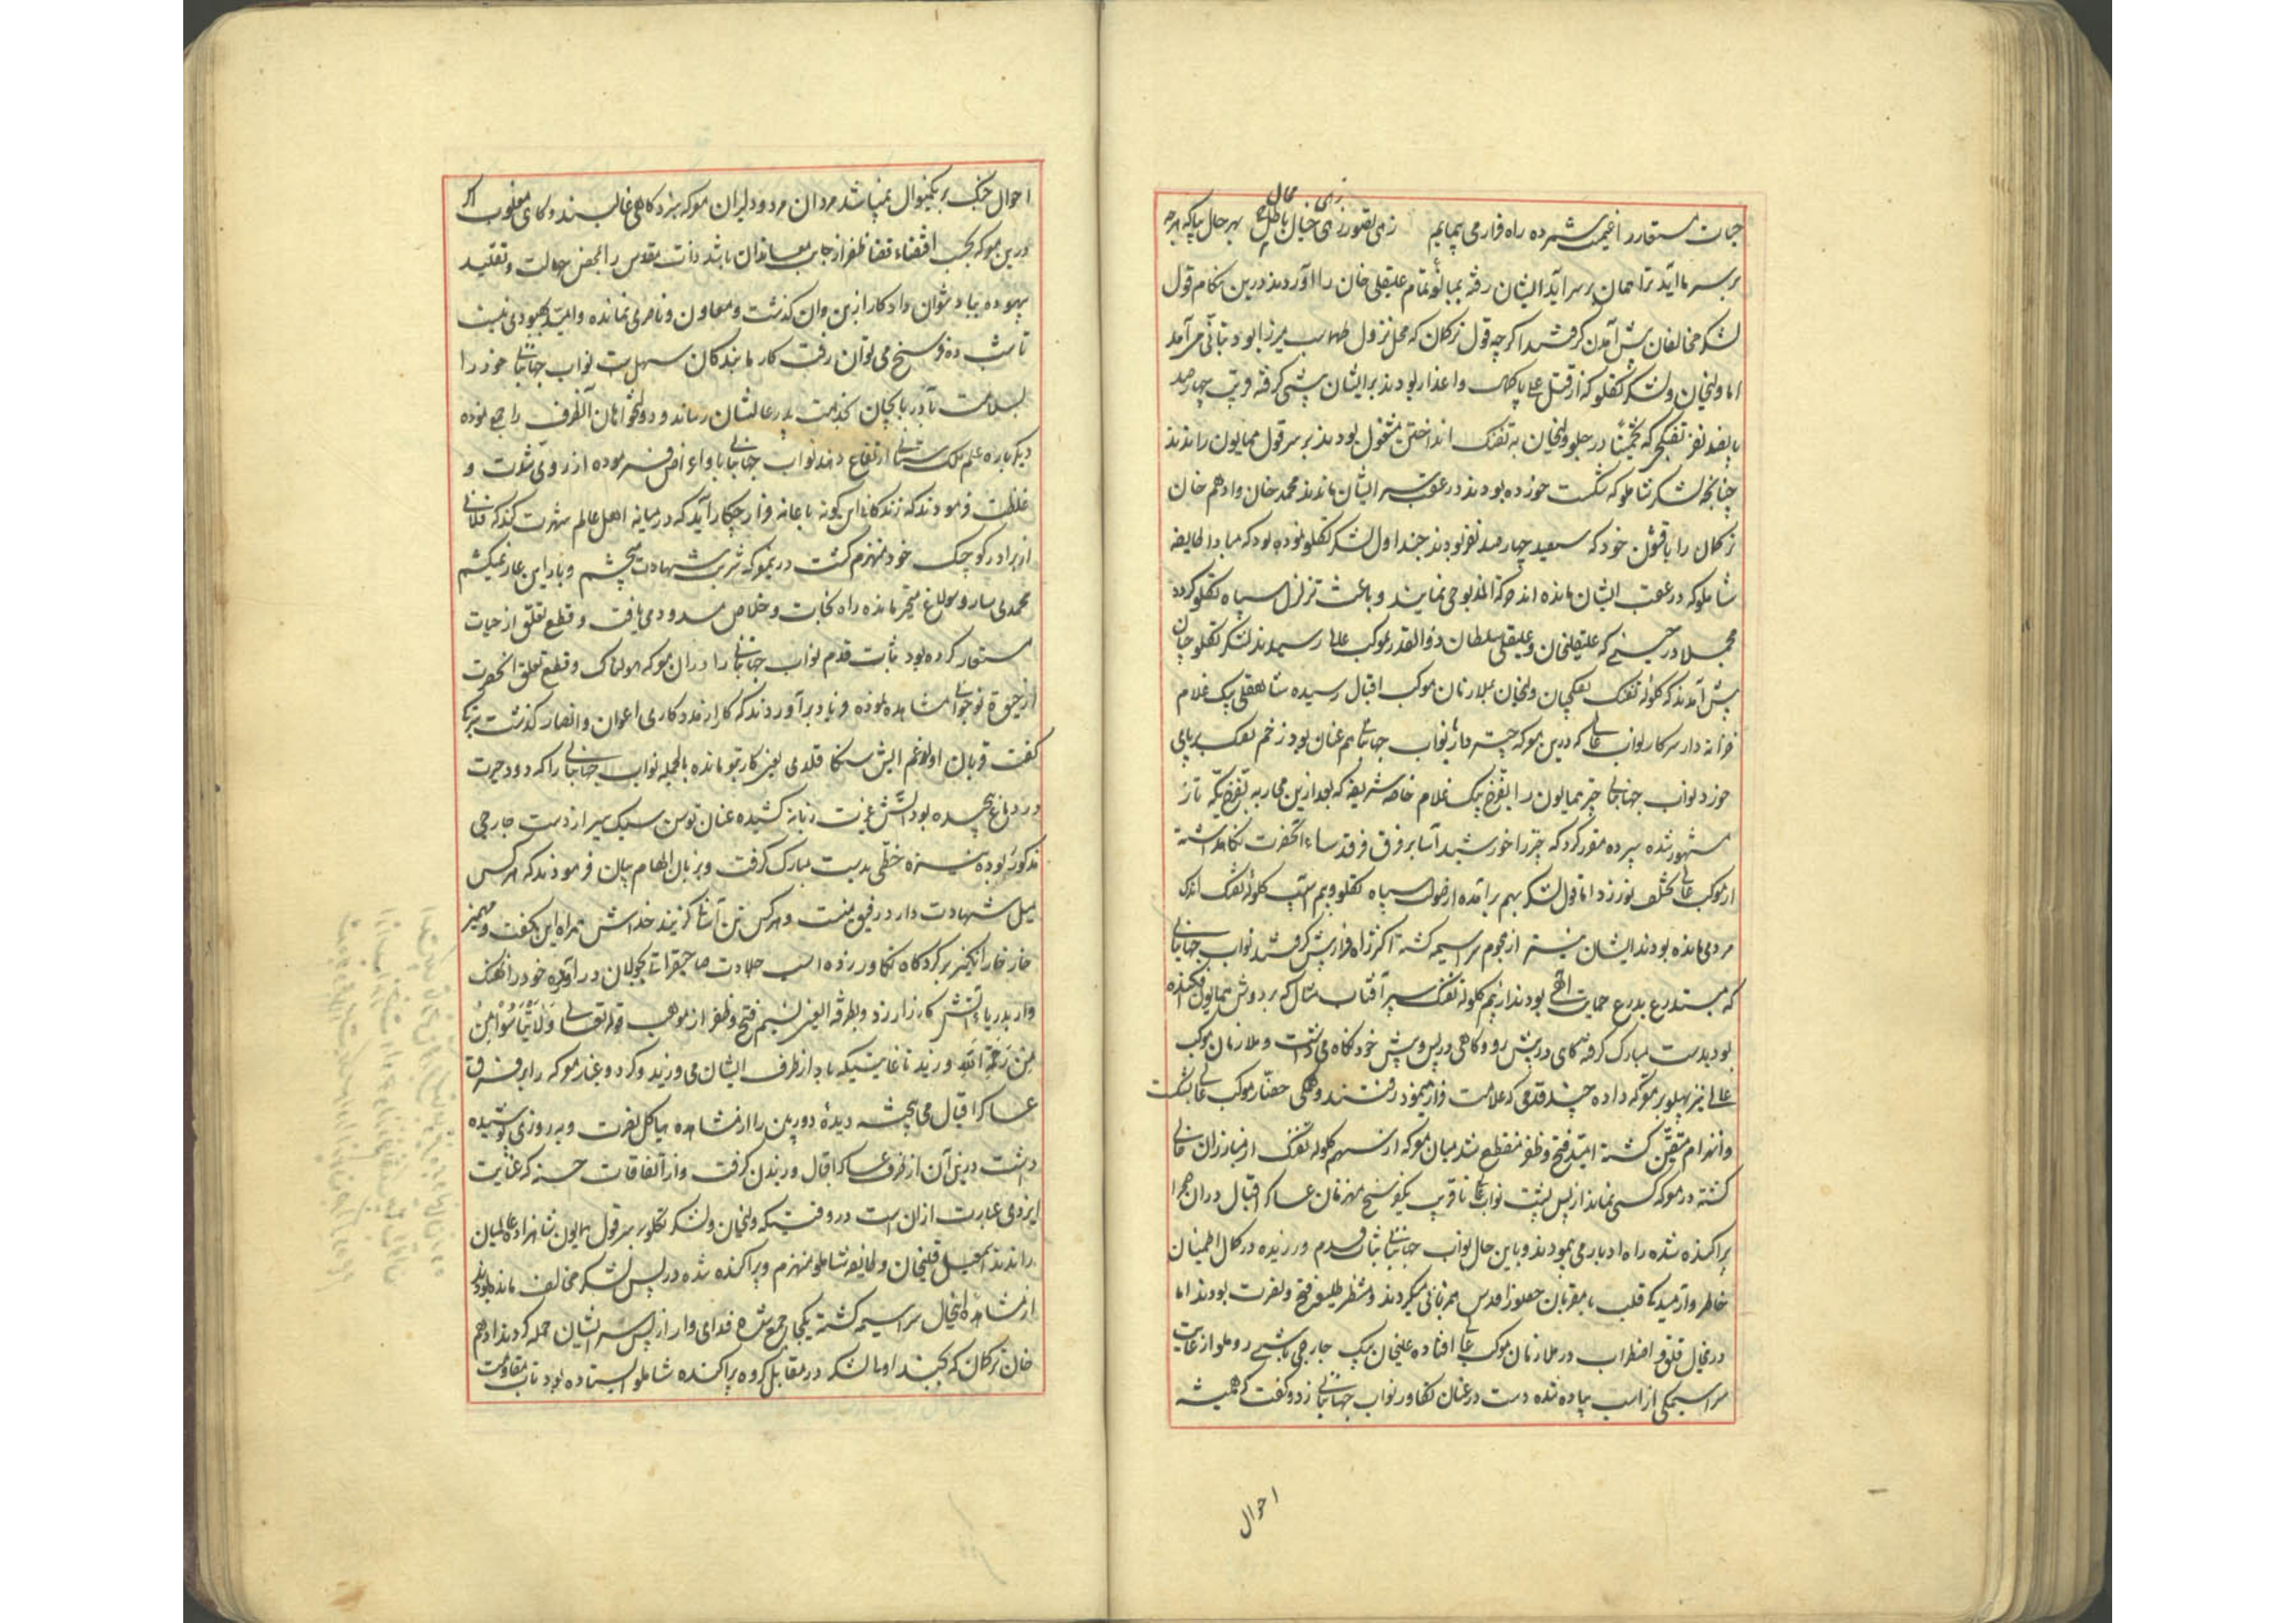 حیات مستعار را غنیمت شمرده راه فرار می پیمایم زهی تصور زهی خیال باطل زهی محال بهر حال بیا که هرچه
بر سر ما آید ترا همان بر سر آید ایشان رفته بمبالغهٔ تمام علیقلی خان را آوردند درین هنگام قول
لشکر مخالفان پیش آمدن گرفتند اگرچه قول ترکمان که محل نزول طهماسب میرزا بود بتأنی می آمد
اما ولیخان و لشکر تکلو که از قتل علی پاکمال واغذار بودند بر ایشان پیشی گرفته قریب چهارصد
پانصد نفر تفنگچی که تخمیناً در جلو ولیخان به تفنک انداختن مشغول بودند بر سر قول همایون راندند
چنانچه لشکر شاملو که شکست خورده بودند در عقب سر ایشان ماندند محمد خان و ادهم خان
ترکمان را با قشون خود که سیصد چهارصد نفر بودند چنداول لشکر تکلو نموده بود که مبادا طایفه
شاملو که در عقب ایشان مانده اند حرکة المذبوحی نمایند و باعث تزلزل سپاه تکلو گردد
مجملا در حینی که علیقلیخان و علیقلی سلطان ذوالقدر بموکب عالی رسیدند لشکر تکلو چنان
پیش آمدند که گلوله تفنک تفنکچیان ولیخان بملازمان موکب اقبال رسیده شاهقلی بیک غلام
خزانه دار سرکار نواب عالی که درین معرکه چتر دار نواب جهانبانی هم عنان بود زخم تفنک بر پای
خورد نواب جهانبانی چتر همایون را بقرخ بیک غلام خاصه شریفه که بعد ازین محاربه بقرخ یکه تاز
مشهور شده سپرده مقرر کرد که چتر را خورشید آسا بر فرق فرقد سای آنحضرت نگاهداشته
از موکب عالی تخلف نورزد اما قول لشکر بهم برآمده از هول سپاه تکلو و بیم آسیب گلوله تفنک اندک
مردمی مانده بودند ایشان نیز از هجوم سراسیمه گشته اکثر راه فرار پیش گرفتند نواب جهانبانی
که مستدرع بدرع حمایت الهی بودند از بیم گلوله تفنک سپر آفتاب مثال که بر دوش همایون افکنده
بود بدست مبارک گرفته گاهی در پیش رو و گاهی در پس و پیش خود نگاه می داشت و ملازمان موکب
عالی نیز پهلو بر معرکه داده چند قدمی که علامت فرار مینمود رفتند و همگی حضار موکب عالی شکست
و انهزام متیقن گشته امید فتح و ظفر منقطع شد میان معرکه از سهم گلوله تفنک از مبارزان خالی
گشته در معرکه کسی نماند از پس پشت نواب عالی تا قریب یکفرسخ منهزمان عساکر اقبال دران صحرا
پراکنده شده راه ادبار می پیمودند و باین حال نواب جهانبانی ثبات قدم ورزیده در کمال اطمینان
خاطر و آرمیدگی قلب با مقربان حضور اقدس همزبانی میکردند و منتظر طلیعه فتح و نصرت بودند اما
درینحال قلق و اضطراب در ملازمان موکب عالی افتاده علیخان بیک جارچی باشی روملو از غایت
سراسیمگی از اسب پیاده شده دست در عنان تکاور نواب جهانبانی زد و گفت که همیشه
احوال
احوال جنک بر یکمنوال نمیباشد مردان مرد و دلیران معرکه نبرد گاهی غالبند و گاهی مغلوب اگر
درین معرکه بحسب اقتضاء قضا ظفر از جانب معاندان باشد ذات مقدس را بمحض جهالت و تقلید
بیهوده بباد نتوان داد کار ازین و آن گذشت و معاون و ناصری نمانده و امید بهبودی نیست
تا شب ده فرسخ می توان رفت کار ما بندگان سهل است نواب جهانبانی خود را
بسلامت بآذربایجان بخدمت پدر عالیشان رساند و دولتخواهان آنطرف را جمع نموده
دیگرباره علم ملک ستانی ارتفاع دهند نواب جهانبانی ابا و اعراض فرموده از روی شدت و
غلظت فرمودند که زندگانی این گونه با عار فرار چکار آید که در میانه اهل عالم شهرت کند که فلانی
از برادر کوچک خود منهزم گشت درین معرکه شربت شهادت میچشم و بار این عار نمیکشم
محمدی سارو سولاغ متحیر مانده راه نجات و خلاص مسدود می یافت و قطع تعلق از حیات
مستعار کرده بود ثبات قدم نواب جهانبانی را دران معرکه هولناک و قطع تعلق آنحضرت
از حیوة نوجوانی مشاهده نموده فریاد برآوردند که کار از مدد کاری اعوان و انصار گذشت بترکی
گفت قربان اولوغم ایش سنکا قلدی یعنی کار بتو مانده بالجمله نواب جهانبانی را که دود حیرت
در دماغ پیچیده بود آتش غیرت زبانه کشیده عنان توسن سبک سیر از دست جارچی
مذکور ربوده نیزه خطی بدست مبارک گرفت و بزبان الهام بیان فرمودند که هر کس
میل شهادت دارد رفیق منست و هر کس تن آسانی گزیند خداش همراه این بگفت و مهمیز
خار خار انگیز بر گردگاه تکاور زده اسب جلادت صاحبقرانی بجولان درآورده خود را نهنک
وار بدریای آتش کارزار زد و بطرفة العین نسیم فتح و ظفر از موهب قوله تعالی وَلَا تَيْأَسُوا مِنْ
مِنْ رَحْمَةِ اللّٰهِ وزید تا غایتیکه باد از طرف ایشان می وزید و گرد و غبار معرکه را بر فرق
عساکر اقبال می پیخت دیدهٔ دوربین را از مشاهده هیاکل نصرت و بهروزی پوشیده
داشت درین آن از طرف عساکر اقبال وزیدن گرفت و از اتفاقات حسنه که عنایت
ایزدی عبارت ازان است در وقتیکه ولیخان و لشکر تکلو بر سر قول همایون شاهزاده عالمیان
راندند اسمعیل قلیخان و طایفه شاملو منهزم و پراکنده شده در پس لشکر مخالف مانده بودند
از مشاهدهٔ اینحال سراسیمه گشته یکجا جمع شده فدایی وار از پس سر ایشان حمله کردند ادهم
خان ترکمان که بجنداولی لشکر در مقابل گروه پراکنده شاملو ایستاده بود تاب مقاومت